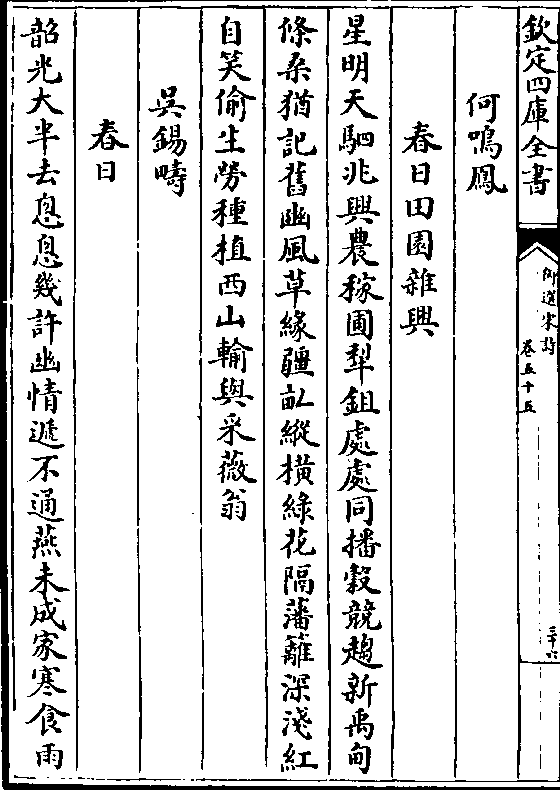 欽定四庫全書
御選宋詩
卷五十五
三十六
何鳴鳳
春日田園雜興
星明天駟兆興農稼圃犁鉏處處同播穀競趨新禹甸
條桑猶記舊豳風草緣疆畝縱橫綠花隔藩籬深淺紅
自笑偷生勞種植西山輸與采薇翁
吳錫疇
春日
韶光大半去悤悤幾許幽情遞不通燕未成家寒食雨